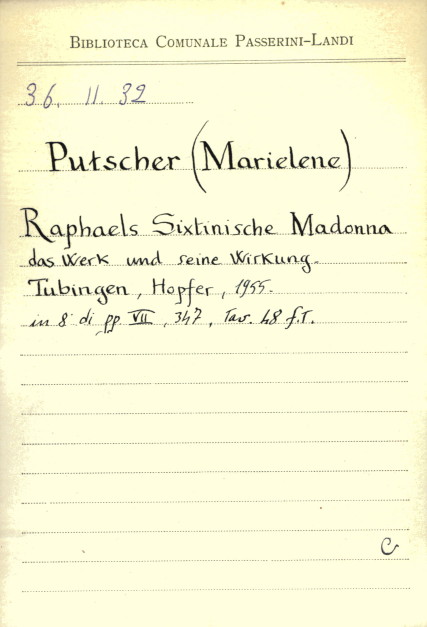 BIBLIOTECA COMUNALE PASSERINI-LANDI
36. 11. 32
Putscher (Marielene)
Raphaels Sixtinische Madonna
das Werk und seine Wirkung.
Tubingen, Hopfer, 1955.
in 8° di pp. VII, 347, Tav. 48 f.T.
C